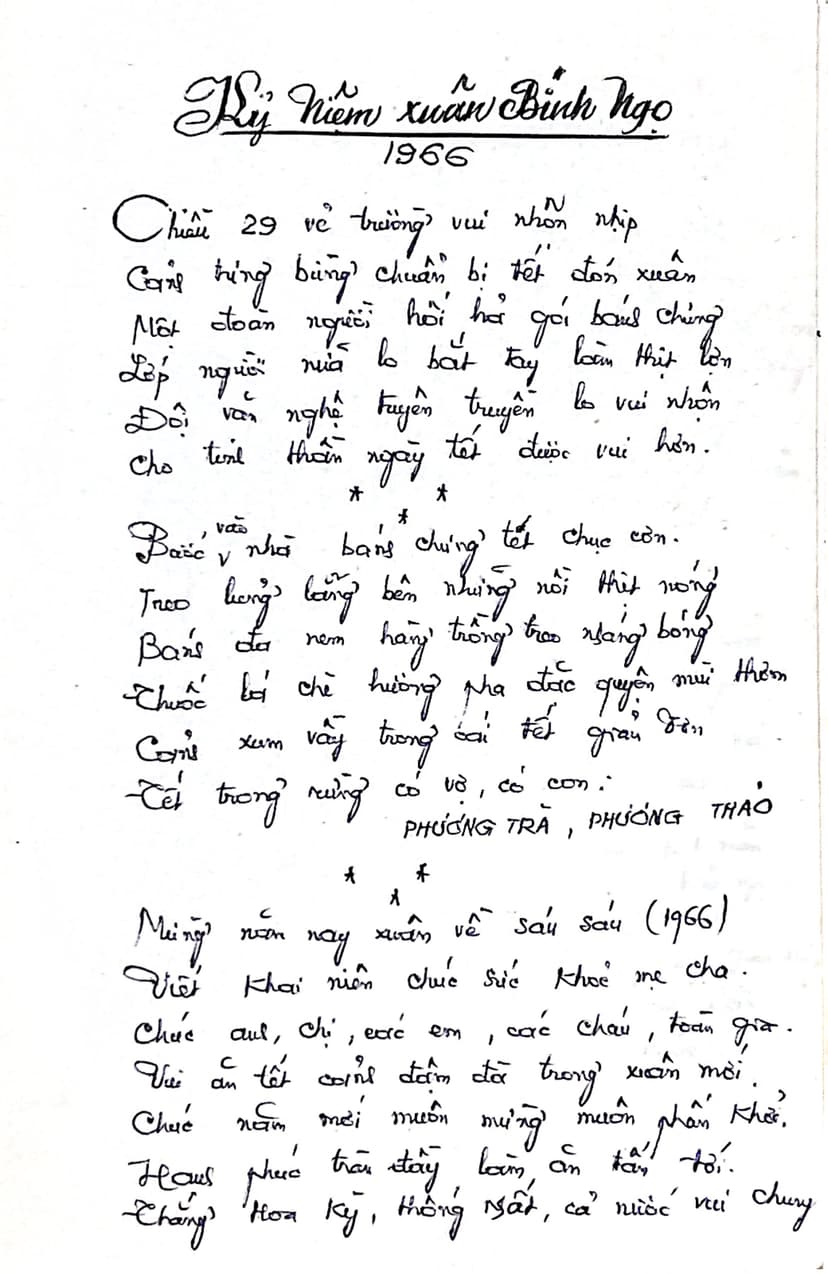 Kỷ Niệm xuân Bính Ngọ
1966
Chiều 29 về trường vui nhộn nhịp
Cảnh tưng bừng chuẩn bị tết đón xuân
Một đoàn người hối hả gói bánh chưng
Lớp người nữa lo bắt tay làm thịt lợn
Đội văn nghệ tuyên truyền lo vui nhộn
Cho tinh thần ngày tết được vui hơn.
* * *
Bước vào nhà bánh chưng tết chục cơn.
Treo lủng lẳng bên những nồi thịt nóng
Bánh đa nem hàng trồng treo nháng bóng
Thuốc lá chè hương pha đặc quyện mùi thơm
Cảnh xum vầy trong cái tết giản đơn
Tết trong rừng có vợ, có con:
PHƯƠNG TRÀ, PHƯƠNG THẢO
* * *
Mừng năm nay xuân về sáu sáu (1966)
Viết khai niên chúc sức khoẻ mẹ cha.
Chúc anh, chị, các em, các cháu, toàn gia.
Vui ăn tết cảnh đậm đà trong xuân mới.
Chúc năm mới muôn mừng muôn phấn khởi.
Hạnh phúc tràn đầy, làm, ăn tấn tới.
Thắng Hoa Kỳ, thống nhất, cả nước vui chung